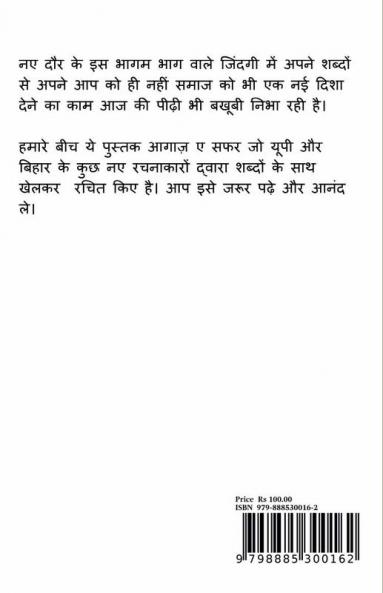 नए दौर के इस भागम भाग वाले जिंदगी में अपने शब्दों
से अपने आप को ही नहीं समाज को भी एक नई दिशा
देने का काम आज की पीढ़ी भी बखूबी निभा रही है।
हमारे बीच ये पुस्तक आगाज़ ए सफर जो यूपी और
बिहार के कुछ नए रचनाकारों द्वारा शब्दों के साथ
खेलकर रचित किए है। आप इसे जरूर पढ़े और आनंद
ले।
Price Rs 100.00
ISBN 979-888530016-2
9 798885 300162